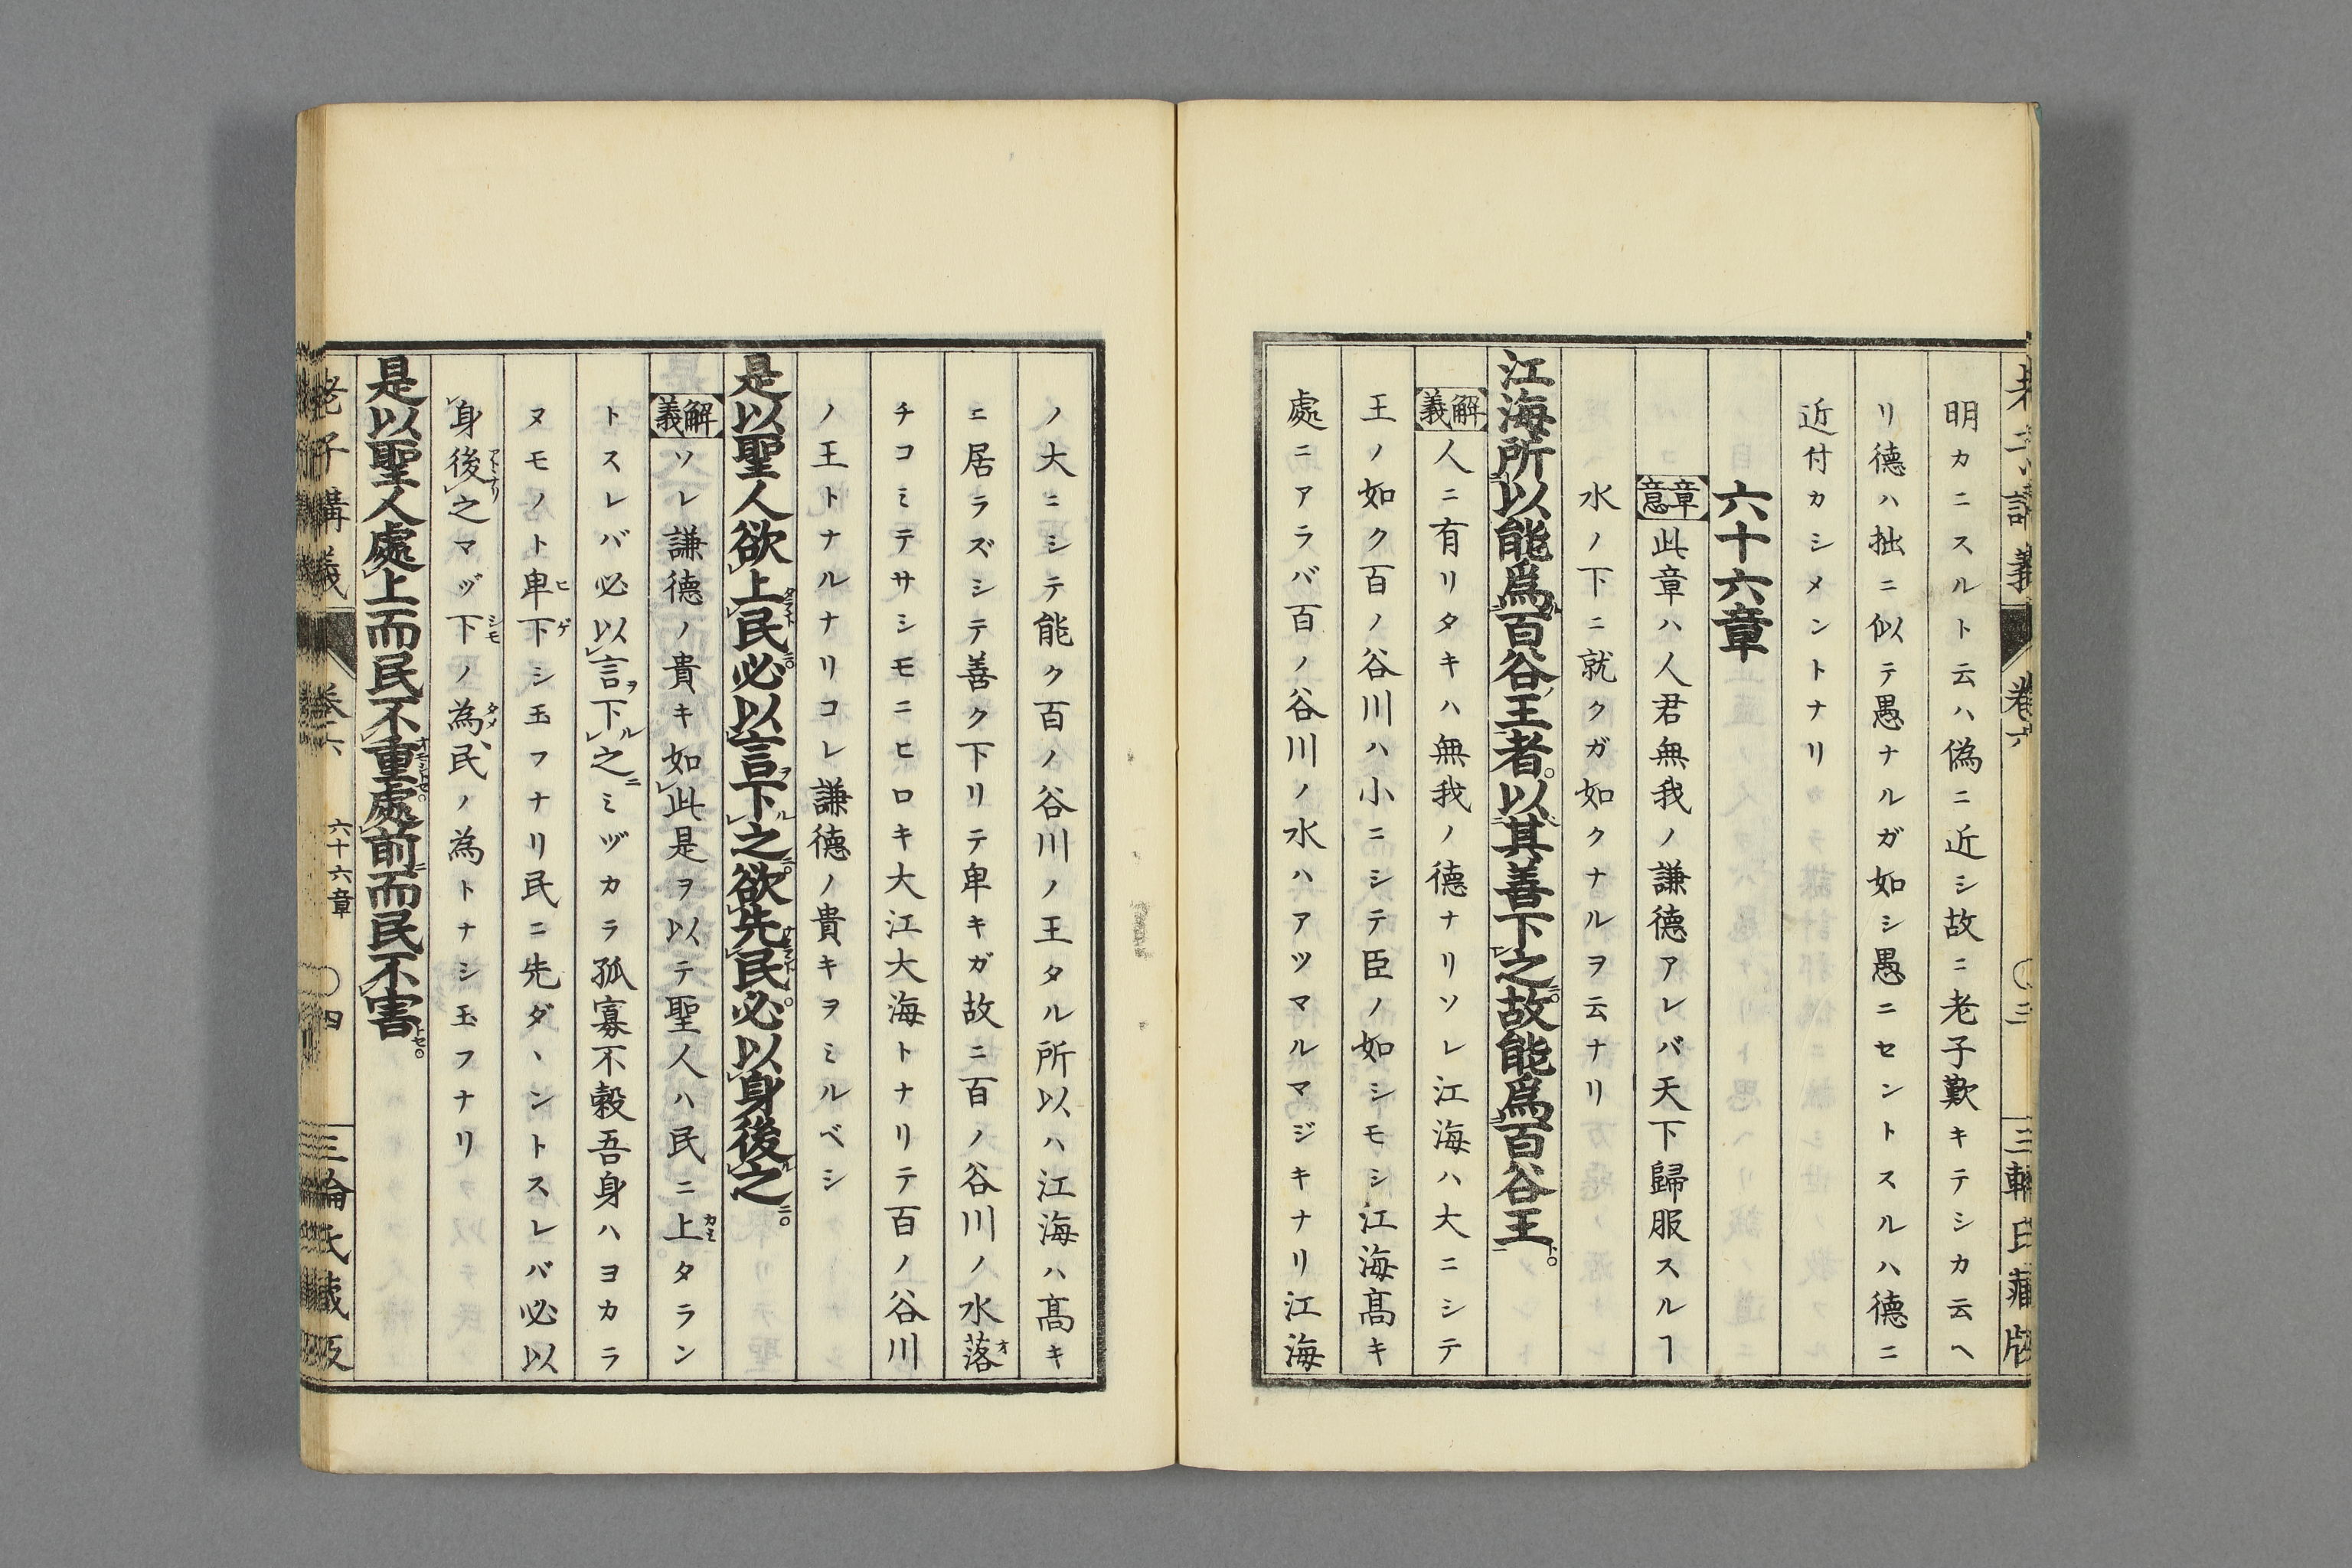 明カニスルト云ハ偽ニ近シ故ニ老子歎キテシカ云ヘ
リ德ハ拙ニ似テ愚ナルガ如シ愚ニセントスルハ德ニ
近付カシメントナリ
六十六章
章意 此章ハ人君無我ノ謙德アレバ天下歸服スルヿ
水ノ下ニ就クガ如クナルヲ云ナリ
江海所以能爲百谷王者。以其善下之。故能爲百谷王。
解義 人ニ有リタキハ無我ノ德ナリソレ江海ハ大ニシテ
王ノ如ク百ノ谷川ハ小ニシテ臣ノ如シモシ江海髙キ
處ニアラバ百ノ谷川ノ水ハアツマルマジキナリ江海
ノ大ニシテ能ク百ノ谷川ノ王タル所以ハ江海ハ髙キ
ニ居ラズシテ善ク下リテ卑キガ故ニ百ノ谷川ノ水落
チコミテサシモニヒロキ大江大海トナリテ百ノ谷川
ノ王トナルナリコレ謙德ノ貴キヲミルベシ
是以聖人欲上民。必以言下之。欲先民。必以身後之。
解義 ソレ謙德ノ貴キ如此是ヲ以テ聖人ハ民ニ上タラン
トスレバ必以言下之ミヅカラ孤寡不穀吾身ハヨカラ
ヌモノト卑下シ玉フナリ民ニ先ダヽントスレバ必以
身後之マヅ下ノ為民ノ為トナシ玉フナリ
是以聖人處上而民不重。處前而民不害。
老子講義 卷六 六十六章 〇四 三輪氏藏版